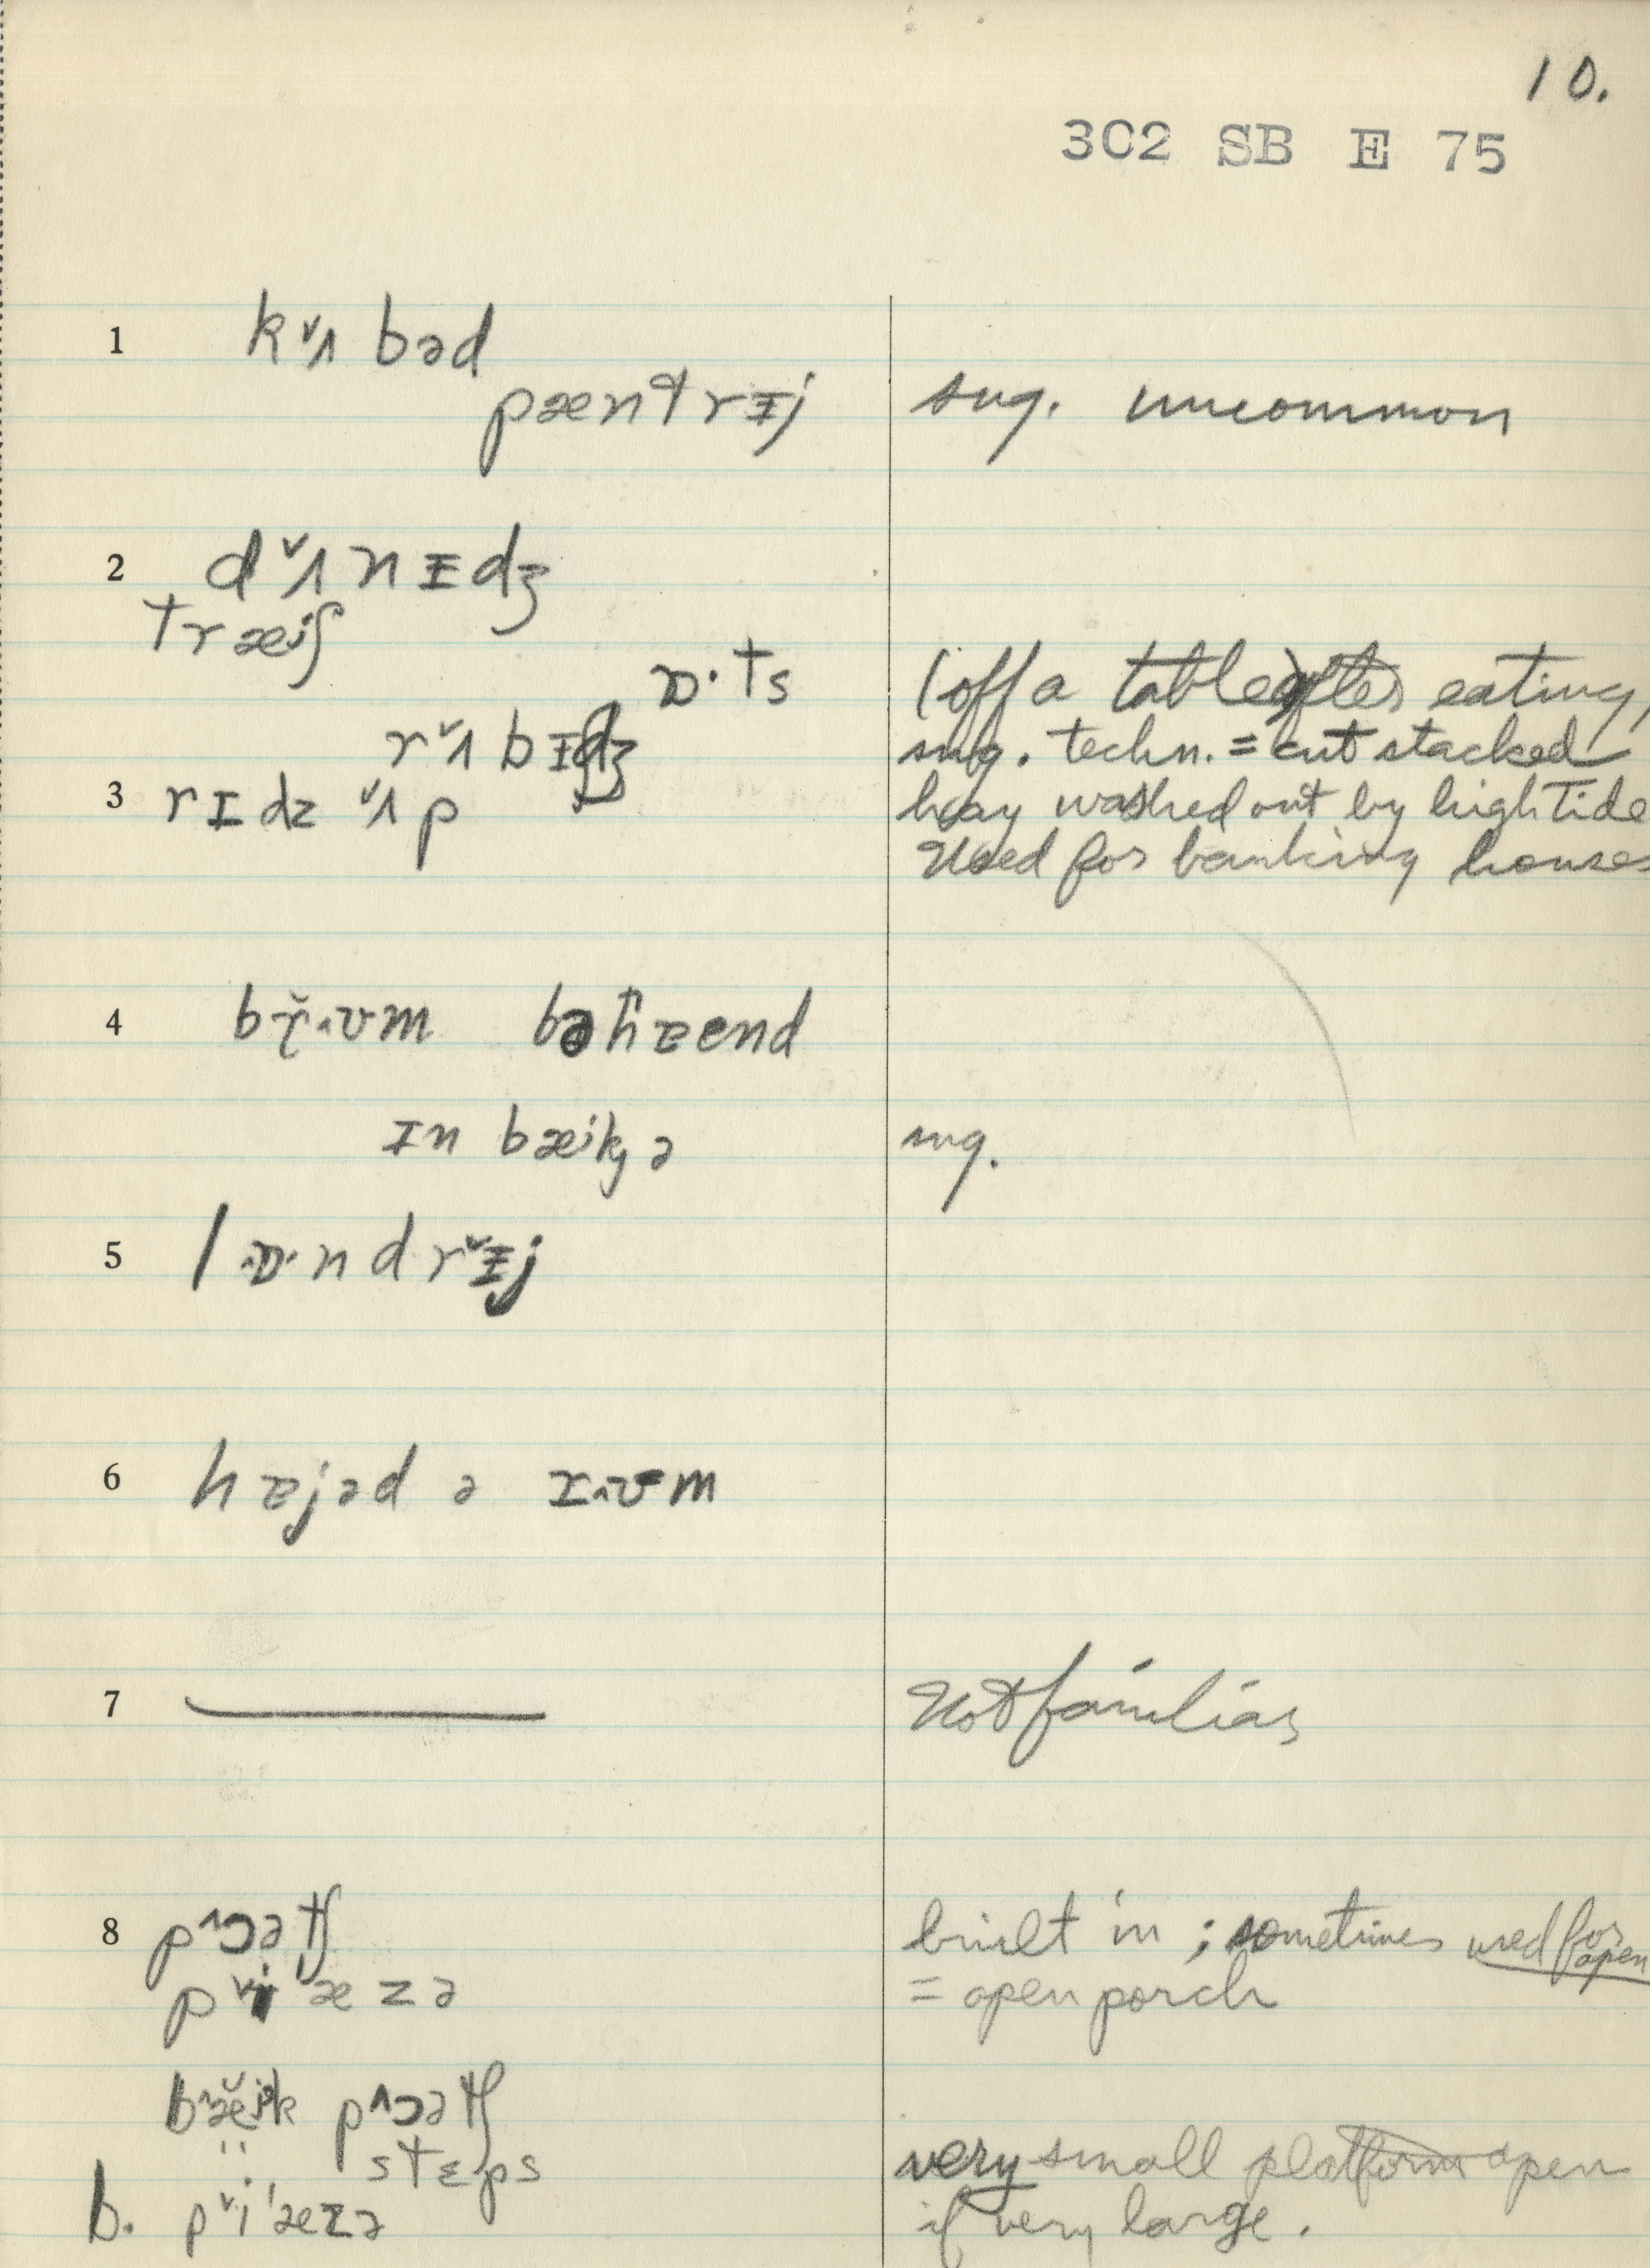 10.
302 SB E 75
1 kᵛʌ bəd
pæntrɪj sug. uncommon
2 dᵛʌnɪdʒ
træiʃ
ɒ·ts (off a table) after eating,
rᵛʌbɪdʒ sug. techn. = cut stacked
3 rɪdz ᵛʌp hay washed out by high tide
Used for banking houses
4 bəhɐend
ɪn bæik ə sug.
5 lɒ·ndrᵛɪj
6 hɐjəd ə
7 — Not familiar
8 p^ɔətʃ built in ; sometimes used for open
pᵛi'æzə = open porch
bæik p^ɔətʃ
" steps very small platform open
b. pᵛi'æzə if very large.